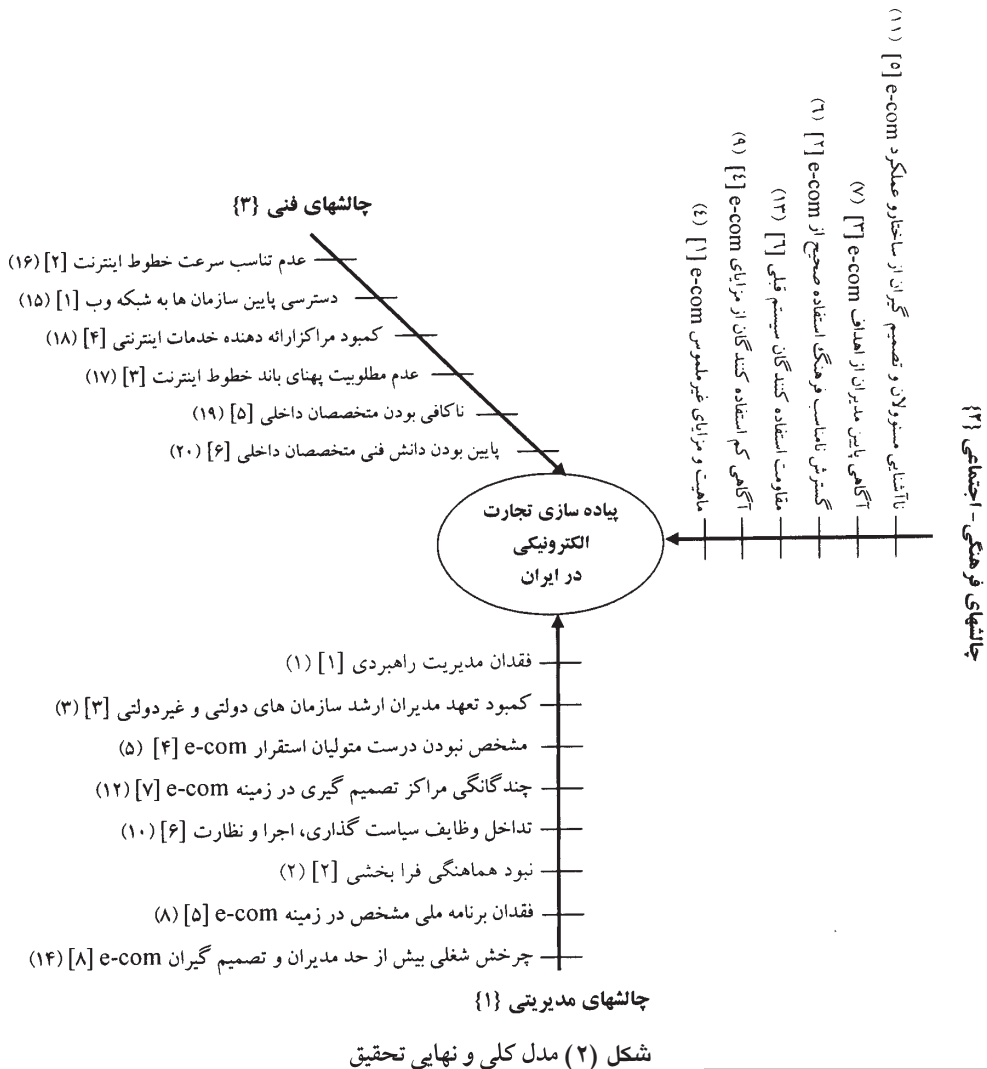 چالشهای فنی {۳}
عدم تناسب سرعت خطوط اینترنت [۲] (۱۶)
دسترسی پایین سازمان ها به شبکه وب [۱] (۱۵)
کمبود مراکزارائه دهنده خدمات اینترنتی [۴] (۱۸)
عدم مطلوبیت پهنای باند خطوط اینترنت [۳] (۱۷)
ناکافی بودن متخصصان داخلی [۵] (۱۹)
پایین بودن دانش فنی متخصصان داخلی [۶] (۲۰)
چالشهای فرهنگی - اجتماعی {۲}
ناآشنایی مسئوولان و تصمیم گیران از ساختارو عملکرد e-com [٥] (١١)
آگاهی پایین مدیران از اهداف e-com [٣] (٧)
گسترش نامناسب فرهنگ استفاده صحیح از e-com [٢] (٦)
مقاومت استفاده کنندگان سیستم قبلی [٦] (١٣)
آگاهی کم استفاده کنندگان از مزایای e-com [٤] (٩)
ماهیت و مزایای غیرملموس e-com [١] (٤)
پیاده سازی تجارت
الکترونیکی
در ایران
فقدان مدیریت راهبردی [۱] (۱)
کمبود تعهد مدیران ارشد سازمان های دولتی و غیردولتی [۳] (۳)
مشخص نبودن درست متولیان استقرار e-com [۴] (۵)
چندگانگی مراکز تصمیم گیری در زمینه e-com [۷] (۱۲)
تداخل وظایف سیاست گذاری، اجرا و نظارت [۶] (۱۰)
نبود هماهنگی فرا بخشی [۲] (۲)
فقدان برنامه ملی مشخص در زمینه e-com [۵] (۸)
چرخش شغلی بیش از حد مدیران و تصمیم گیران e-com [۸] (۱۴)
چالشهای مدیریتی {۱}
شکل (۲) مدل کلی و نهایی تحقیق